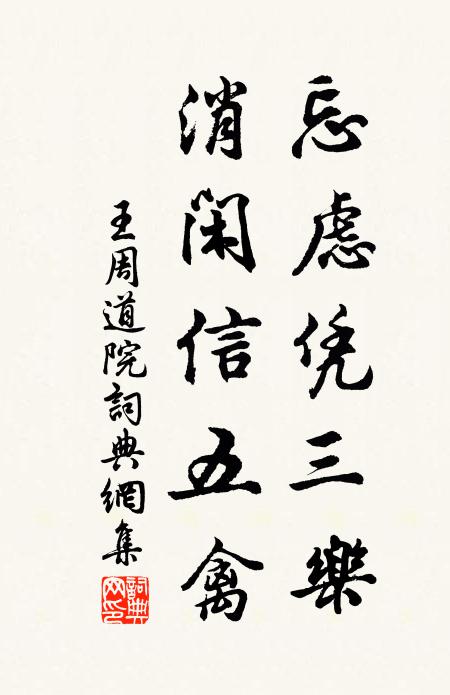 忘慮凭三樂
消閑信五禽
王周道院詞典網集
詞典网印